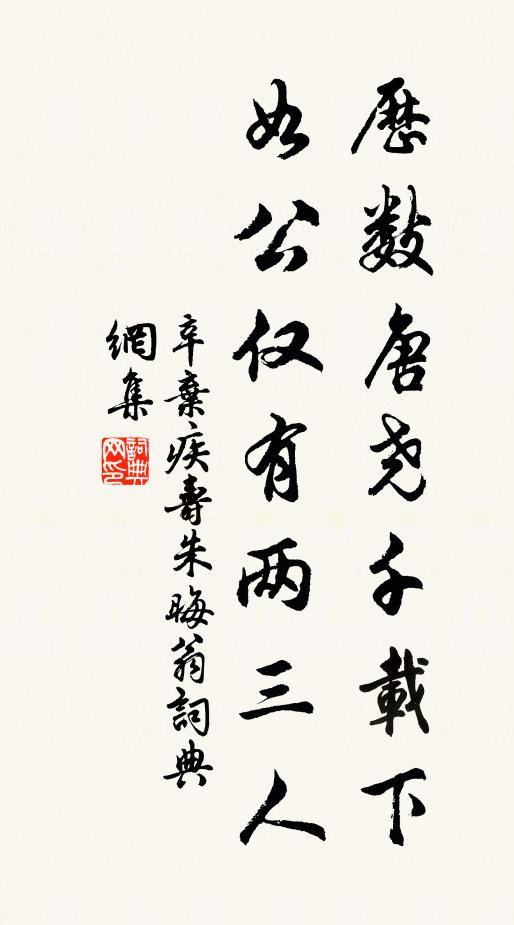 歷數唐尧千載下
如公仅有两三人
辛棄疾壽朱晦翁詞典
網集
詞典
网印